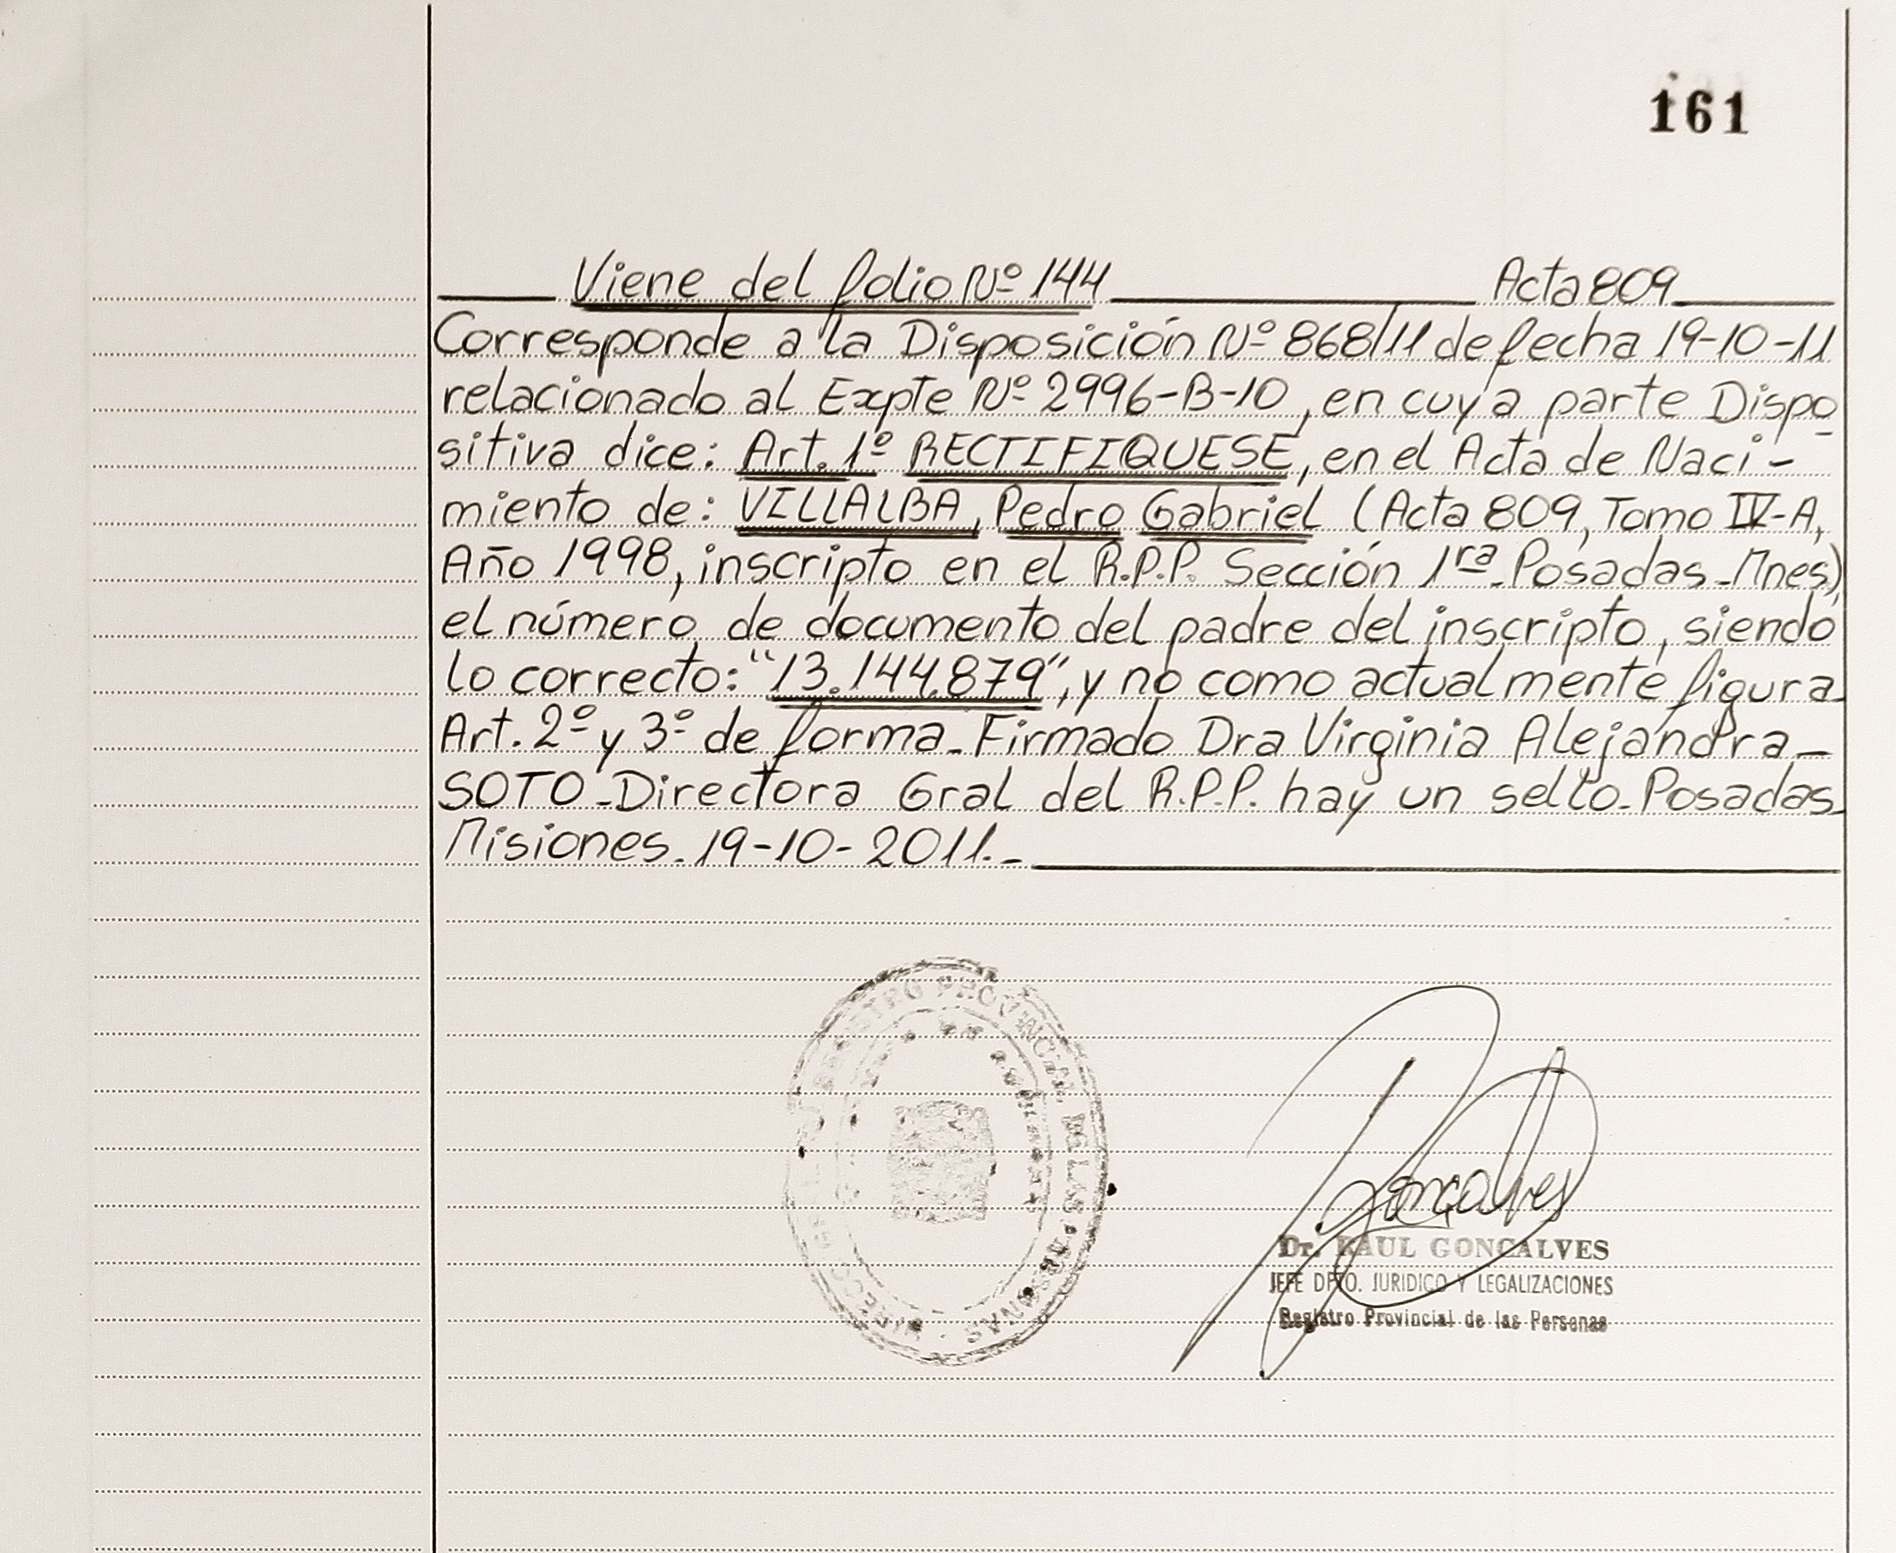 161
Viene del folio Nº 144 Acta 809
Corresponde a la Disposición Nº 868/11 de fecha 19-10-11
relacionado al Expte Nº 2996-B-10, en cuya parte Dispo
sitiva dice: Art. 1º RECTIFIQUESE, en el Acta de Naci-
miento de: VILLALBA, Pedro Gabriel (Acta 809, Tomo IV-A,
Año 1998, inscripto en el R.P.P. Sección 1ra - Posadas - Mnes),
el número de documento del padre del inscripto, siendo
lo correcto: "13.144.879", y no como actualmente figura-
Art. 2º y 3º de forma - Firmado Dra Virginia Alejandra -
SOTO - Directora Gral del R.P.P. hay un sello - Posadas -
Misiones. 19-10-2011.-
REGISTRO PROVINCIAL DE LAS PERSONAS
Goncalves
Dr. RAUL GONCALVES
JEFE DPTO. JURIDICO Y LEGALIZACIONES
Registro Provincial de las Personas